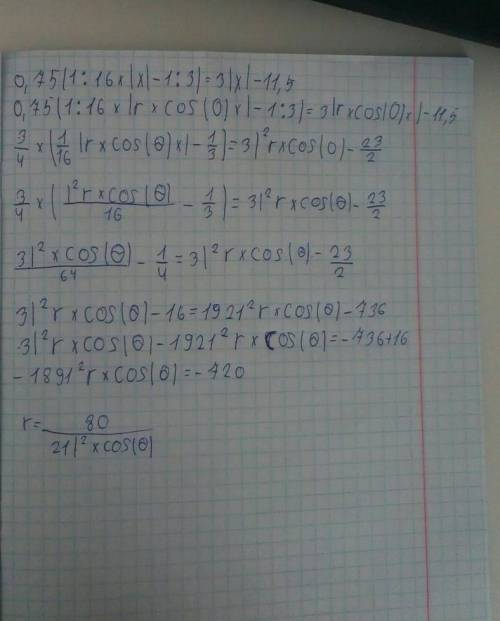 0,75(1:16×|x|-1:3)=3|x|-11,5
0,75(1:16×|r×cos(θ)×|-1:3)=3|r×cos(θ)×|-11,5
3/4×(1/16|r×cos(θ)×|-1/3)=3|²r×cos(θ)-23/2
3/4×(|²r×cos(θ)/16-1/3)=3|²r×cos(θ)-23/2
3|²×cos(θ)/64-1/4=3|²r×cos(θ)-23/2
3|²r×cos(θ)-16=192|²r×cos(θ)-736
3|²r×cos(θ)-192|²r×cos(θ)=-736+16
-189|²r×cos(θ)=-720
r=80/21|²×cos(θ)